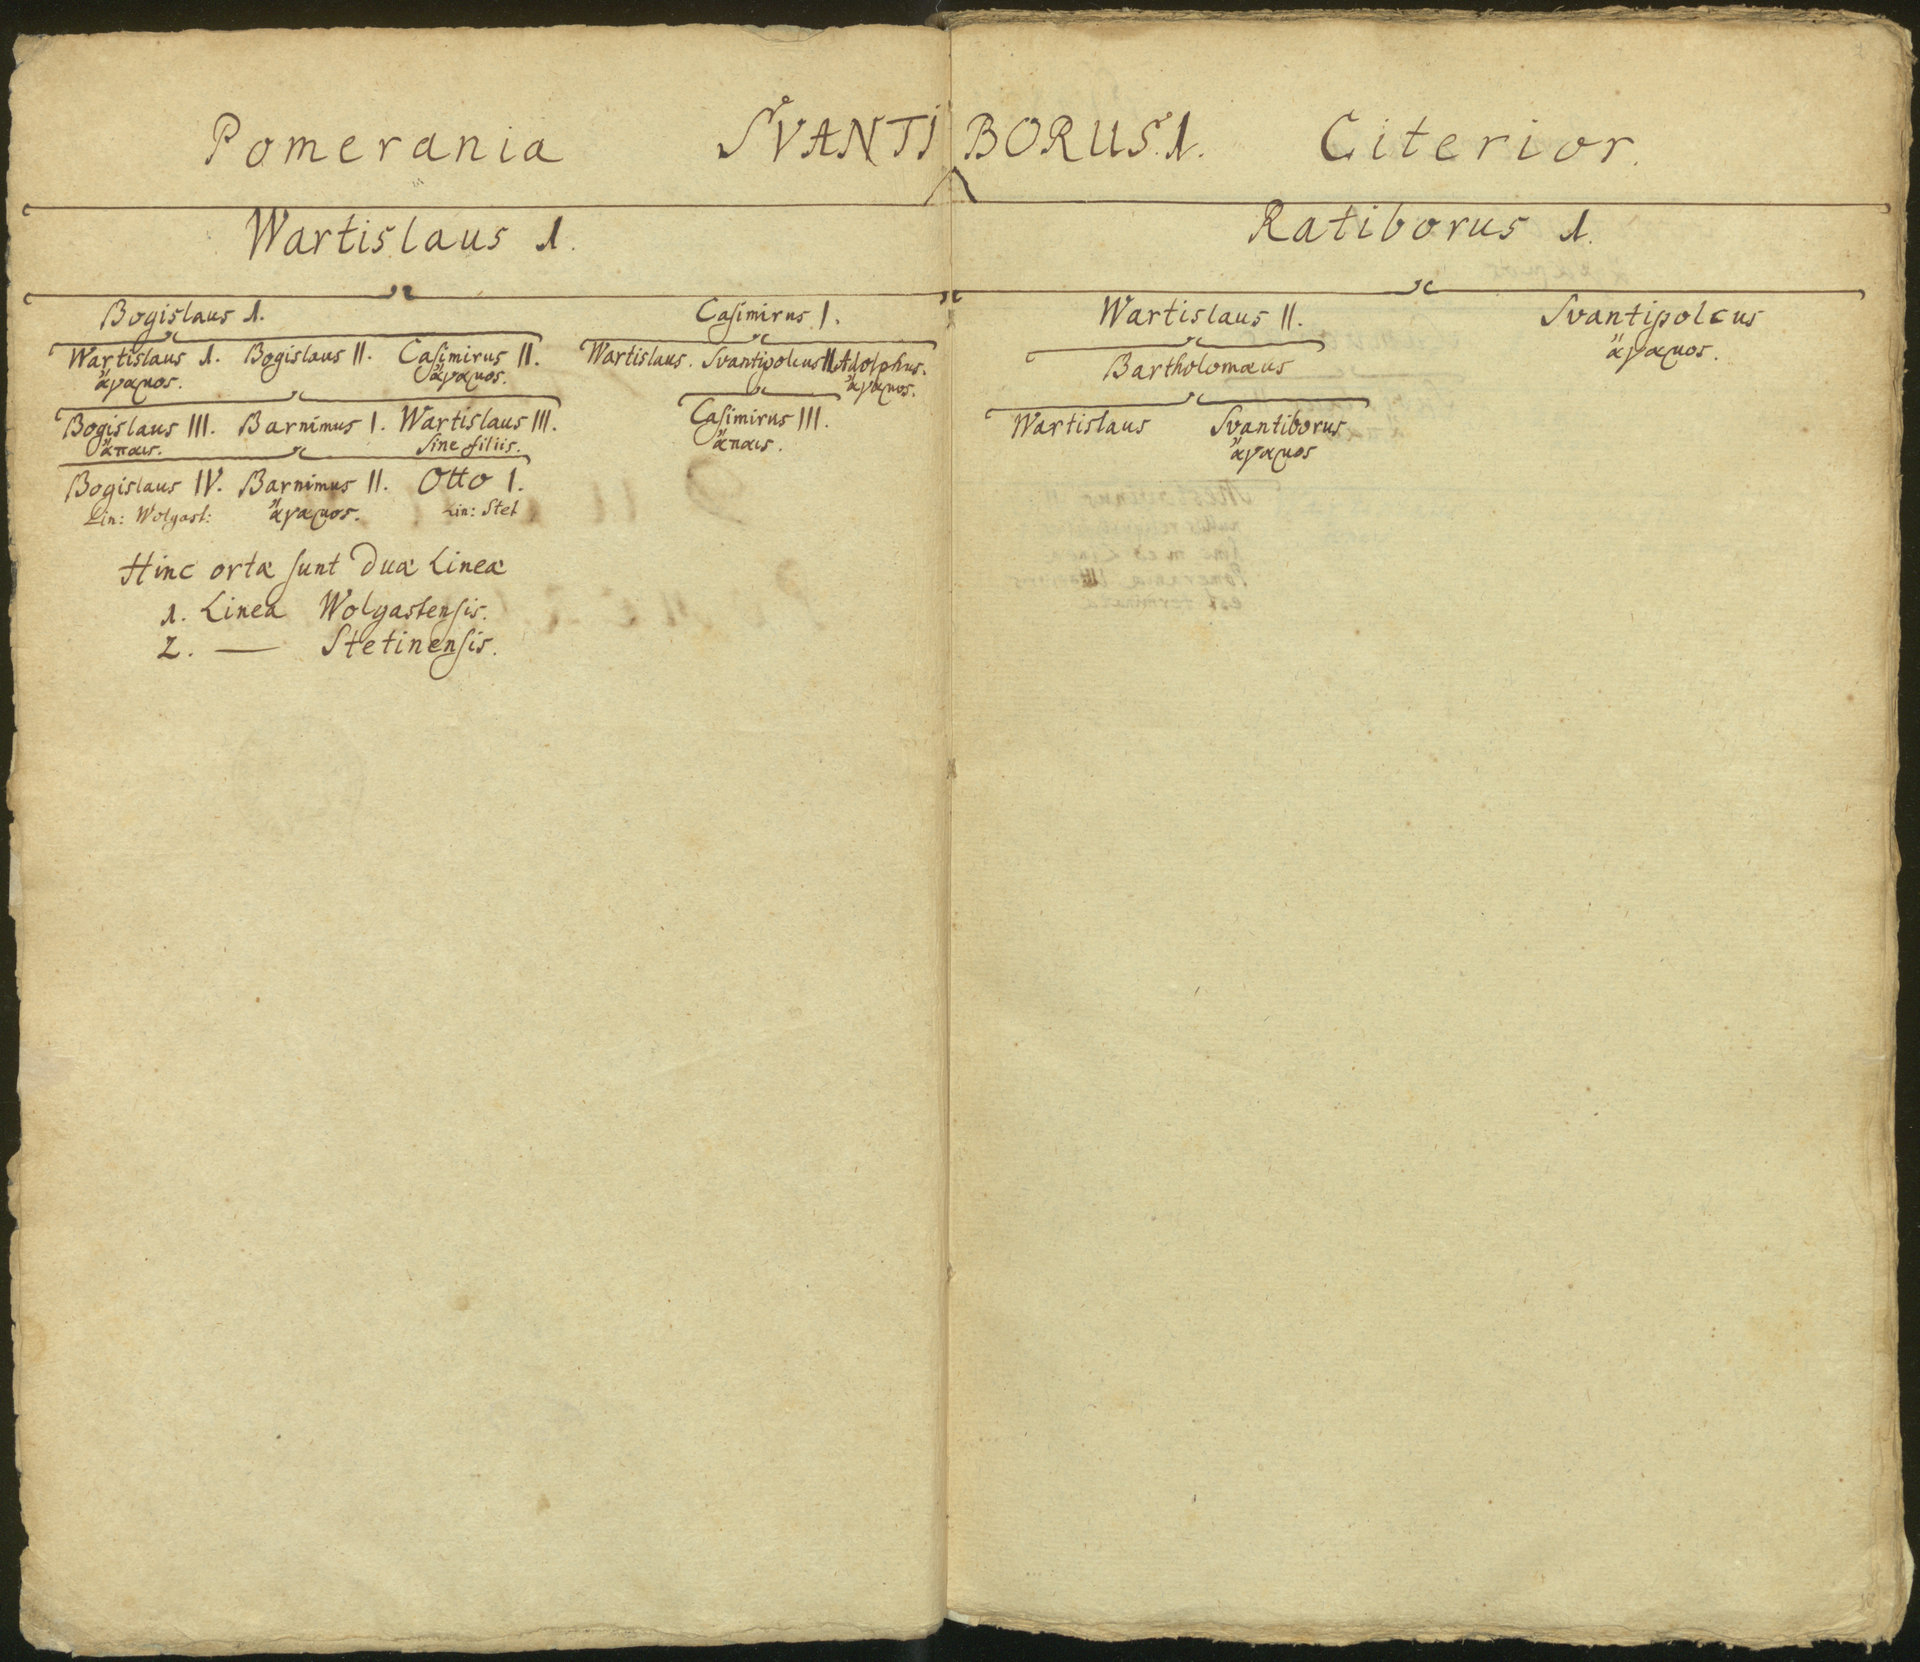 Pomerania SVANTIBORUS. 1. Citerior.
Wartislaus 1.
Ratiborus 1.
Bogislaus 1.
Casimirus I.
Wartislaus II.
Svantipolcus
ἄγαμος.
Wartislaus 1. Bogislaus II. Casimirus II.
ἄγαμος. ἄγαμος.
Wartislaus. Svantipolcus II. Adolphus.
ἄγαμος.
Bartholomæus
Bogislaus III. Barnimus I. Wartislaus III.
ἄπαις. sine filiis.
Casimirus III.
ἄπαις.
Wartislaus Svantiborus
ἄγαμος
Bogislaus IV. Barnimus II. Otto I.
Lin: Wolgast: ἄγαμος. Lin: Stet
Hinc ortæ sunt Duæ Lineæ
1. Linea Wolgastensis.
2. — Stetinensis.